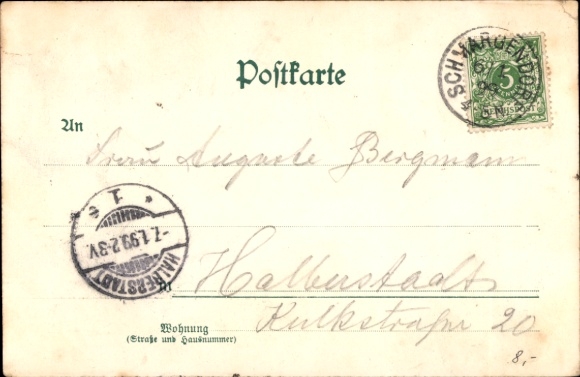 Postkarte
SCHMARGENDORF
5
An
Frau Auguste Bergmann
1 e
-7.1.99.2-3V.
HALBERSTADT
in Halberstadt
Kulkstraße 20
Wohnung
(Straße und Hausnummer)
8,-